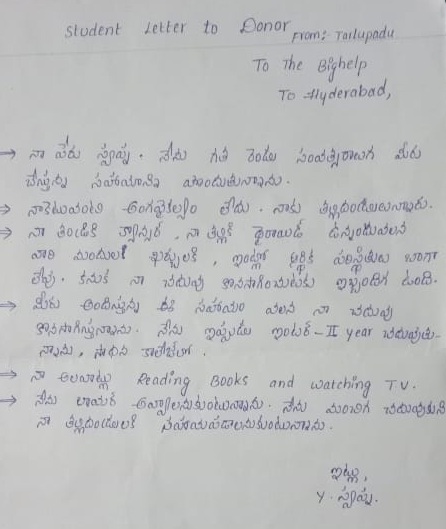 Student Letter to Donor
From: Tallupadu
To The Bighelp
To Hyderabad,
→ నా పేరు స్వప్న. నేను గత రెండు సంవత్సరాలుగ మీరు
చేస్తున్న సహాయాన్ని పొందుతున్నాను.
→ నాకెటువంటి అంగవైకల్యం లేదు. నాకు తల్లిదండ్రులున్నారు.
→ నా తండ్రికి క్యాన్సర్, నా తల్లికి థైరాయిడ్ ఉన్నందువలన
వారి మందులకి ఖర్చులకి, ఇంట్లో ఆర్థిక పరిస్థితులు బాగా
లేవు. కనుక నా చదువు కొనసాగించుటకు ఇబ్బందిగ ఉంది.
→ మీరు అందిస్తున్న ఈ సహాయం వలన నా చదువు
కొనసాగిస్తున్నాను. నేను ఇప్పుడు ఇంటర్-II year చదువుతు-
న్నాను, సాధన కాలేజిలో.
→ నా అలవాట్లు Reading Books and watching T.V.
→ నేను లాయర్ అవ్వాలనుకుంటున్నాను. నేను మంచిగ చదువుకుని
నా తల్లిదండ్రులకి సహాయపడాలనుకుంటున్నాను.
ఇట్లు,
Y. స్వప్న.